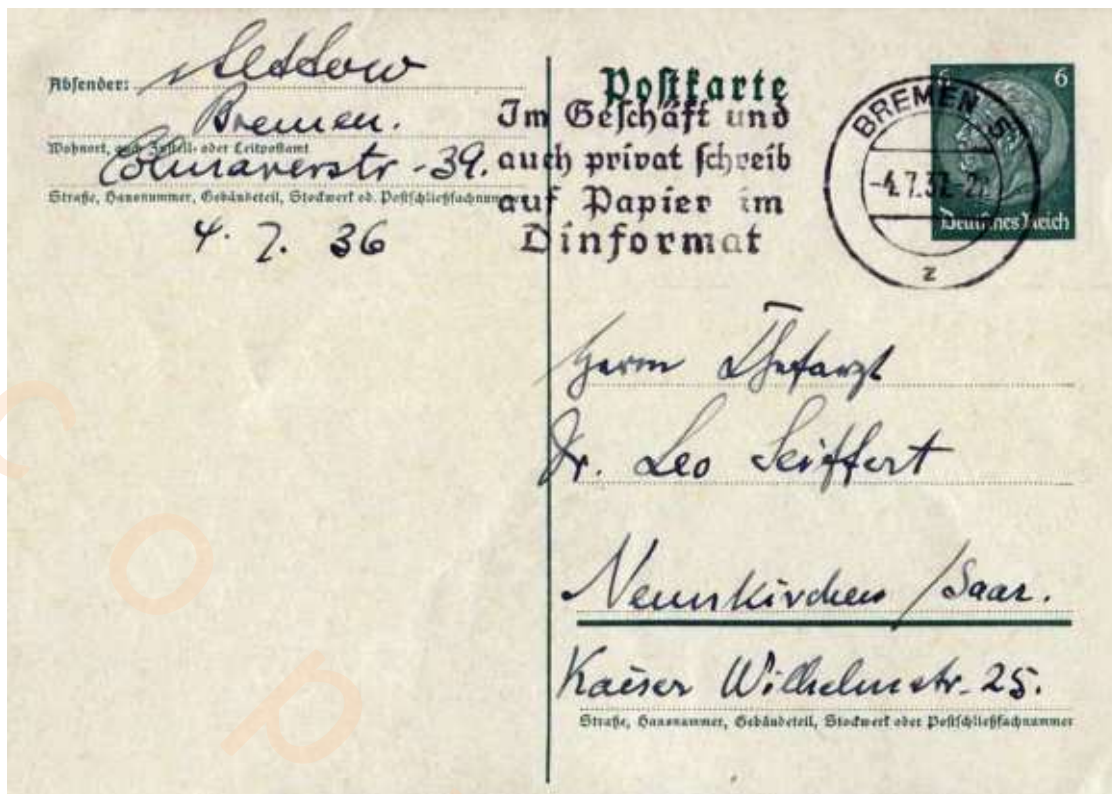 Absender:
Bremen.
Wohnort, auch Zustell- oder Leitpostamt
Colmarerstr -39.
Straße, Hausnummer, Gebäudeteil, Stockwerk od. Postschließfachnummer
4. 7. 36
Postkarte
Im Geschäft und
auch privat schreib
auf Papier im
Dinformat
BREMEN 5
-4.7.37.-
z
6 6
Deutsches Reich
Herrn Chefarzt
Dr. Leo Seiffert
Neunkirchen /Saar.
Kaiser Wilhelmstr. 25.
Straße, Hausnummer, Gebäudeteil, Stockwerk oder Postschließfachnummer